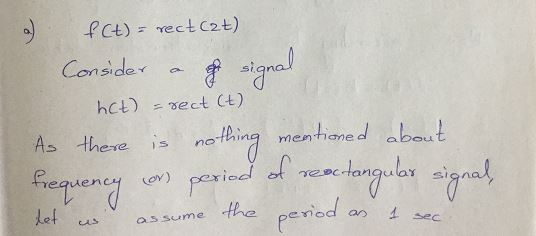 a) f(t) = rect(2t)
Consider a signal
h(t) = rect (t)
As there is nothing mentioned about
frequency (or) period of rectangular signal,
let us assume the period as 1 sec.